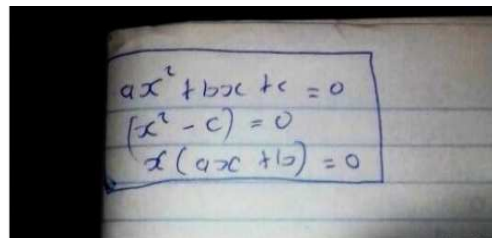 ax² + bx + c = 0
(x² - c) = 0
x(ax + b) = 0